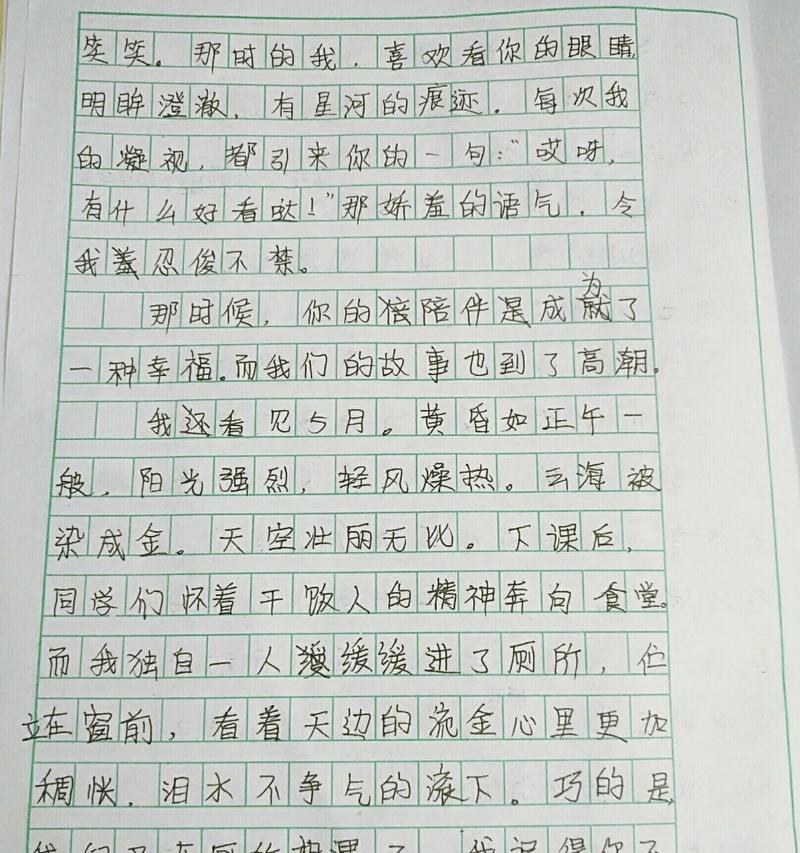 笑笑。那时的我，喜欢看你的眼睛，
明眸澄澈，有星河的痕迹。每次我
的凝视，都引来你的一句："哎呀，
有什么好看哒！"那娇羞的语气，令
我羞忍俊不禁。
那时候，你的陪伴是成为就了
一种幸福。而我们的故事也到了高潮。
我还看见5月。黄昏如正午一
般，阳光强烈，轻风燥热。云海被
染成金。天空壮丽无比。下课后，
同学们怀着干饭人的精神奔向食堂。
而我独自一人缓缓进了厕所，伫
立在窗前，看着天边的流金心里更加
稠怅，泪水不争气的滚下。巧的是，